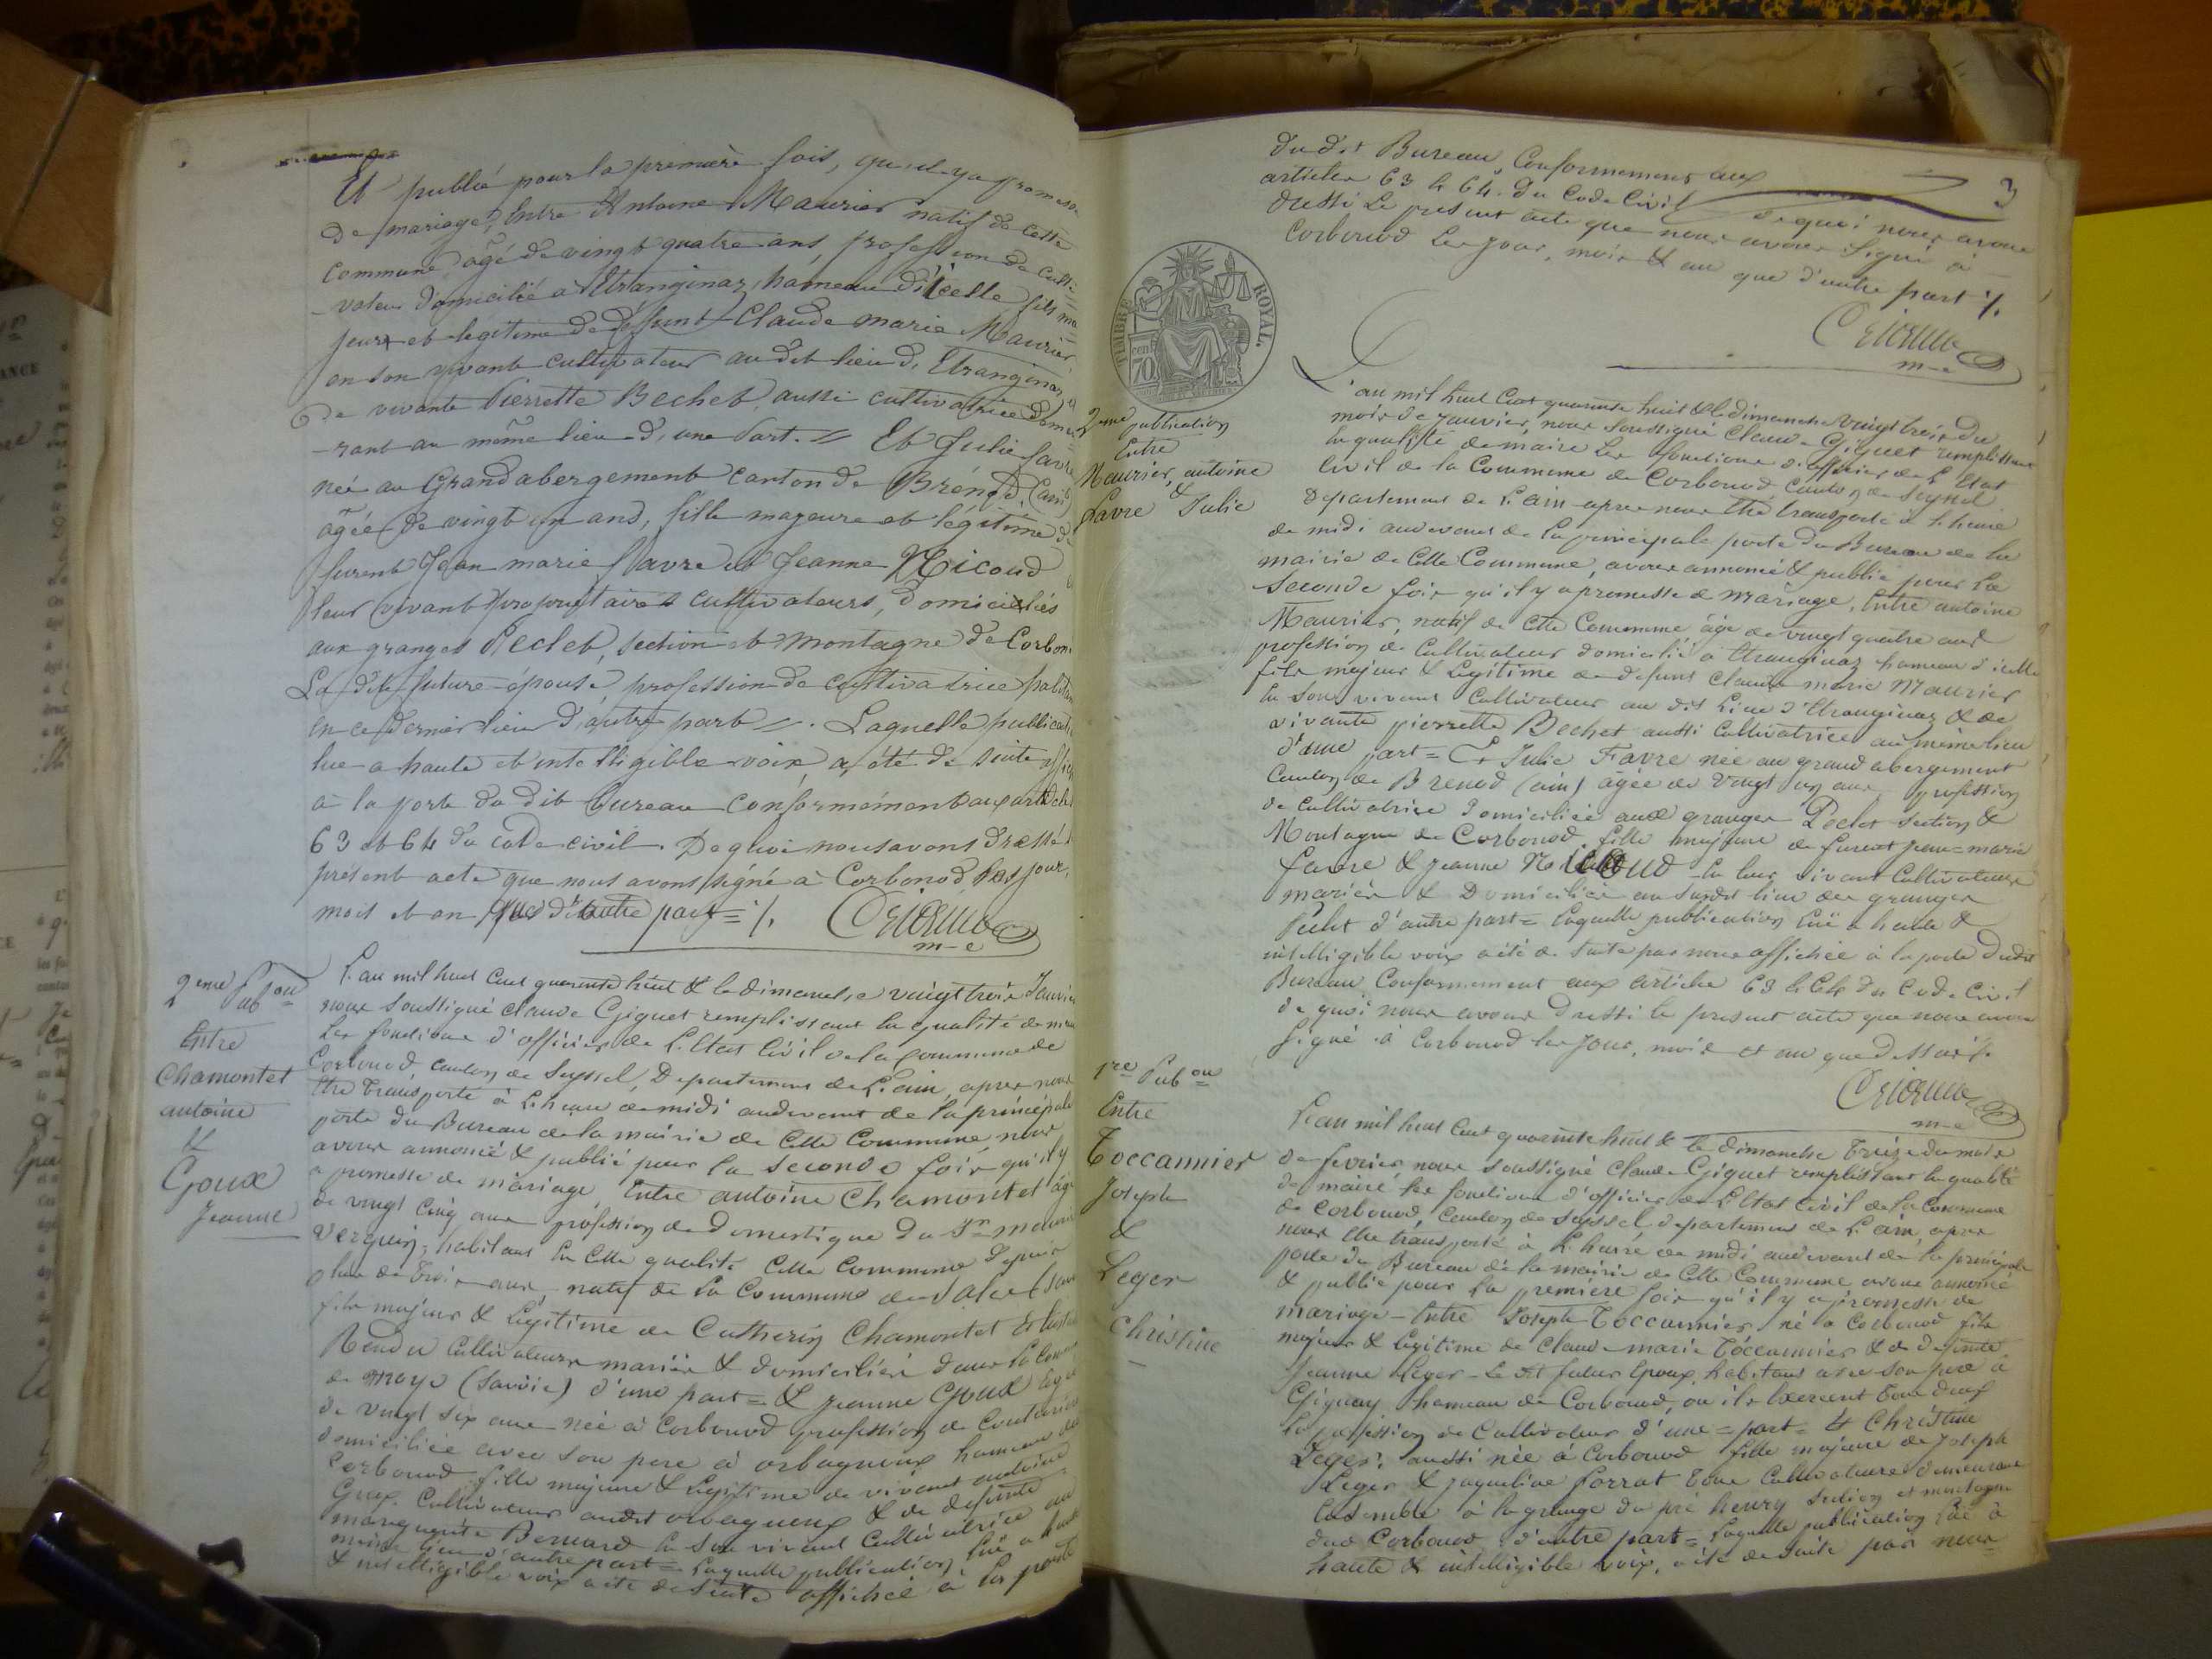 Et publié pour la premiere fois, qu'il y a promesse
de mariage, Entre Antoine Maurier natif de cette
commune âgé de vingt quatre ans, profession de culti=
-vateur domicilié a Etranginaz, hameau d'icelle fils ma=
jeur et legitime de défunt Claude marie Maurier
en son vivant cultivateur au dit lieu d'Etranginaz &
de vivante Pierrette Bechet aussi cultivatrice demeu-
-rant au même lieu d'une Part. = Et Julie favre
née au Grand abergement canton de Brénod (ain)
âgée de vingt un ans, fille majeure et légitime de
furent Jean marie favre et Jeanne Nicoud
leur vivant propriétaires cultivateurs, domiciliés
aux granges Peclet, section et montagne de Corbon.
La dite future épouse, profession de cultivatrice habitant
en ce dernier lieu d'autre part =. Laquelle publication
lue a haute et intelligible voix a été de suite affiché
à la porte du dit bureau conformément aux articles
63 et 64 du code civil. De quoi nous avons dressé le
présent acte que nous avons signé à Corbonod les jour,
mois et an que d'autre part = %.
m-e
2eme Pub on
Entre
Chamontet
antoine
&
Goux
Jeanne
L'an mil huit cent quarante huit & le dimanche vingt trois Janvier
nous soussigné claude Giguet remplissant la qualité de maire
les fonctions d'officier de L'Etat Civil de la commune de
Corbonod, canton de Seyssel, Departement de L'ain, apres nous
être transporté à L'heure de midi audevant de la principale
porte du Bureau de la mairie de cette Commune, nous
avons annoncé & publié pour la seconde fois qu'il y
a promesse de mariage, Entre antoine Chamontet âgé
de vingt cinq ans profession de domestique du Sr
habitant en cette qualité cette Commune depuis
plus de trois ans, natif de la Commune de
fils majeur & Légitime de Catherin Chamontet &
cultivateurs mariés & domiciliés dans la Commune
de moye (Savoie) d'une part = & Jeanne Goux âgée
de vingt six ans née à Corbonod profession de Couturière
domiciliée avec son pere à orbagnoux hameau de
Corbonod, fille majeure & Legitime de vivant antoine
Goux, Cultivateur audit orbagnoux & de defunte
marguerite Bernard en son vivant Cultivatrice au
même lieu d'autre part = Laquelle publication lue a haute
& intelligible voix a été de suite affichée à la porte
3
du dit Bureau, Conformement aux
articles 63 & 64 du Code Civil de quoi nous avons
dressé Le present acte que nous avons signé à
Corbonod Les Jour, mois & an que d'autre part %.
m-e
TIMBRE ROYAL.
cen 70
2eme publication
Entre
Maurier, antoine
&
Favre Julie
L'an mil huit Cent quarante huit & le dimanche vingt trois du
mois de Janvier, nous soussigné Claude Giguet remplissant
la qualité de maire Les fonctions d'officier de L'Etat
Civil de la Commune de Corbonod Canton de Seyssel
Departement de L'ain apres nous être transporté à L'heure
de midi audevant de la principale porte du Bureau de la
mairie de Cette Commune, avons annoncé & publié pour La
Seconde fois qu'il y a promesse de Mariage, Entre antoine
Maurier, natif de Cette Commune âgé de vingt quatre ans
profession de Cultivateur domicilié à Etranginaz hameau d'icelle
fils majeur & Legitime de defunt Claude marie Maurier
en son vivant Cultivateur au dit Lieu d'Etranginaz & de
vivante pierrette Bechet aussi Cultivatrice au même lieu
d'une part = Et Julie Favre née au grand abergement
Canton de Brenod (ain) âgée de vingt un ans profession
de cultivatrice Domiciliée aux granges Peclet section &
Montagne de Corbonod, fille majeure de furent Jean = marie
favre & Jeanne Nicoud en leur vivant Cultivateurs
mariés & Domiciliés au susdit lieu des granges
Peclet d'autre part = Laquelle publication Lue à haute &
intelligible voix a été de suite par nous affichée à la porte dudit
Bureau Conformement aux articles 63 & 64 du Code Civil
de quoi nous avons dressé le present acte que nous avons
signé à Corbonod les Jour, mois et an que dessus %.
m-e
1re Pub on
Entre
Toccannier
Joseph
&
Leger
Christine
L'an mil huit Cent quarante huit & le dimanche treize du mois
de fevrier nous soussigné Claude Giguet remplissant la qualité
de maire les fonctions d'officier de L'Etat Civil de la Commune
de Corbonod, Canton de Seyssel, departement de L'ain, apres
nous être transporté à L'heure de midi audevant de la principale
porte du Bureau de la mairie de Cette Commune avons annoncé
& publié pour La premiere fois qu'il y a promesse de
mariage - Entre Joseph Toccannier, né à Corbonod fils
majeur & Legitime de Claude marie Toccannier & de defunte
Jeanne Leger - Le dit futur Epoux, habitant avec son pere à
Gignay hameau de Corbonod, ou ils exercent tous deux
la profession de Cultivateur d'une = part = & Christine
Leger, aussi née à Corbonod fille majeure de Joseph
Leger & Jaqueline Porrat tous Cultivateurs demeurant
Ensemble à la grange du pré henry section et montagne
dud Corbonod d'autre part = Laquelle publication lue à
haute & intelligible voix, a été de suite par nous